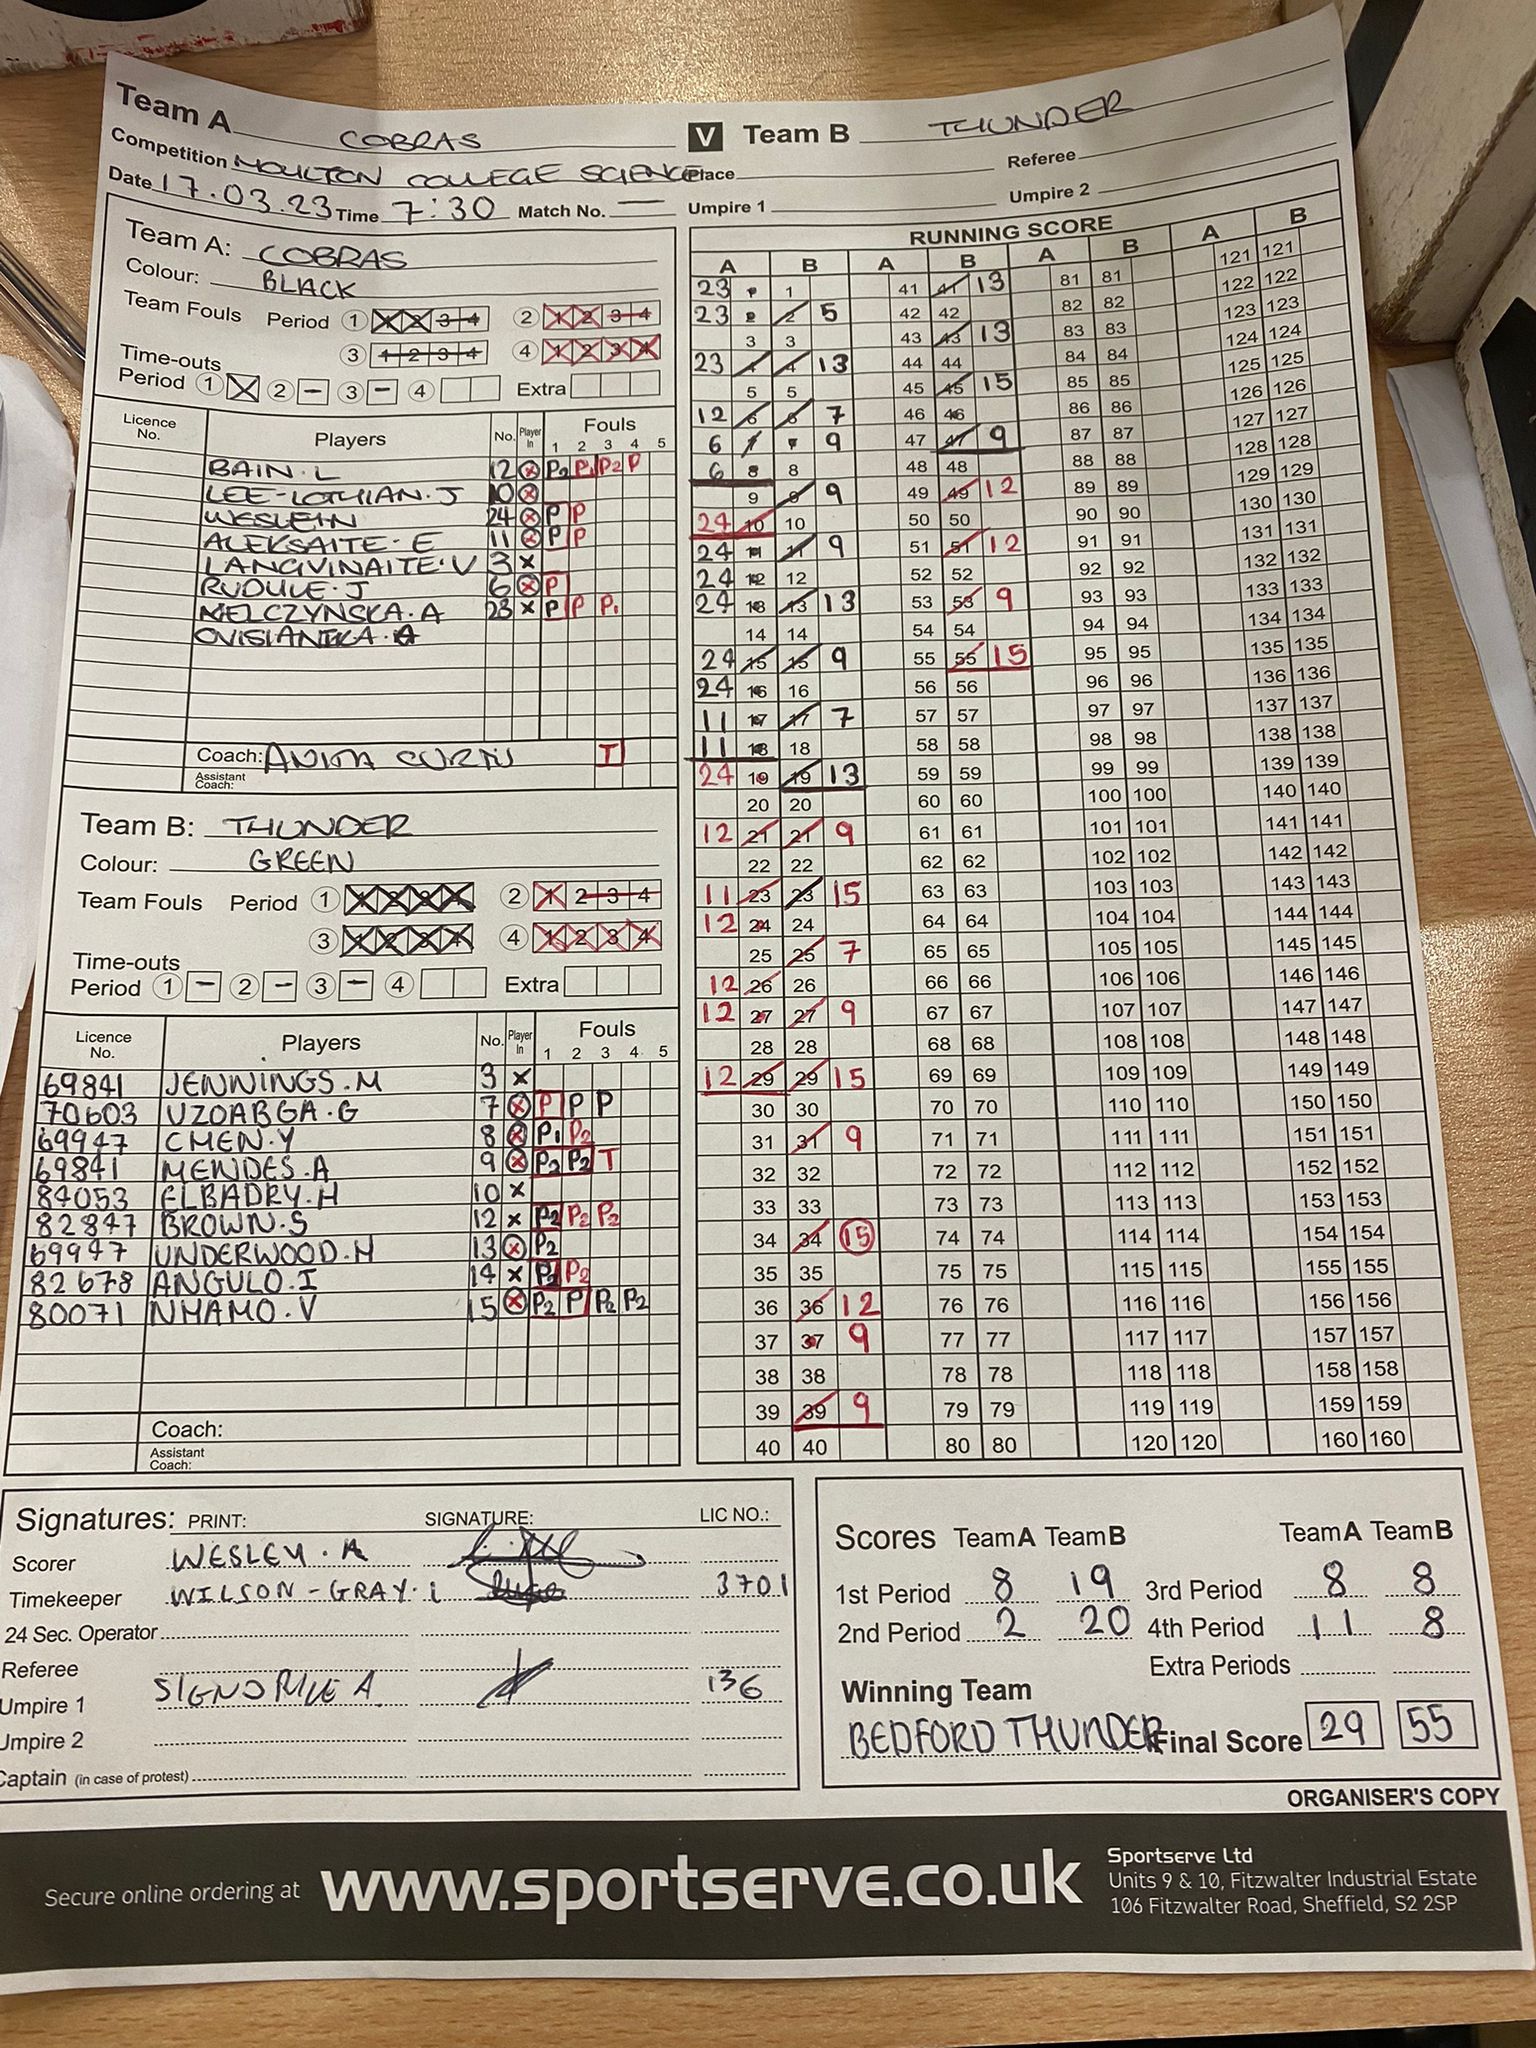 Team A COBRAS V Team B THUNDER
Competition MOULTON COLLEGE SCIENCE Place Referee
Date 17.03.23 Time 7:30 Match No. — Umpire 1 Umpire 2
Team A: COBRAS
Colour: BLACK
Team Fouls Period 1 1 2 3 4 2 1 2 3 4
3 1 2 3 4 4 1 2 3 4
Time-outs
Period 1 X 2 – 3 – 4 Extra
Licence No. Players No. Player In Fouls 1 2 3 4 5
BAIN.L 12 X P2 P1 P2 P
LEE-LOTHIAN.J 10 X
24 X P P
ALEKSAITE.E 11 X P P
LANGVINAITE.V 3 X
RUDULE.J 6 X P
MELCZYNSKA.A 23 X P P P1
Coach: ANITA T
Assistant Coach:
Team B: THUNDER
Colour: GREEN
Team Fouls Period 1 1 2 3 4 2 1 2 3 4
3 1 2 3 4 4 1 2 3 4
Time-outs
Period 1 – 2 – 3 – 4 Extra
Licence No. Players No. Player In Fouls 1 2 3 4 5
69841 JENNINGS.M 3 X
70603 UZOABGA.G 7 X P P P
69947 CMEN.Y 8 X P1 P2
69841 MENDES.A 9 X P2 P2 T
84053 ELBADRY.H 10 X
82847 BROWN.S 12 X P2 P2 P2
69947 UNDERWOOD.H 13 X P2
82678 ANGULO.I 14 X P2 P2
80071 NHAMO.V 15 X P2 P P2 P2
Coach:
Assistant Coach:
RUNNING SCORE
A B A B A B A B
23 1 1 41 41 13 81 81 121 121
23 2 2 5 42 42 82 82 122 122
3 3 43 43 13 83 83 123 123
23 4 4 13 44 44 84 84 124 124
5 5 45 45 15 85 85 125 125
12 6 6 7 46 46 86 86 126 126
6 7 7 9 47 47 9 87 87 127 127
6 8 8 48 48 88 88 128 128
9 9 9 49 49 12 89 89 129 129
24 10 10 50 50 90 90 130 130
24 11 11 9 51 51 12 91 91 131 131
24 12 12 52 52 92 92 132 132
24 13 13 13 53 53 9 93 93 133 133
14 14 54 54 94 94 134 134
24 15 15 9 55 55 15 95 95 135 135
24 16 16 56 56 96 96 136 136
11 17 17 7 57 57 97 97 137 137
11 18 18 58 58 98 98 138 138
24 19 19 13 59 59 99 99 139 139
20 20 60 60 100 100 140 140
12 21 21 9 61 61 101 101 141 141
22 22 62 62 102 102 142 142
11 23 23 15 63 63 103 103 143 143
12 24 24 64 64 104 104 144 144
25 25 7 65 65 105 105 145 145
12 26 26 66 66 106 106 146 146
12 27 27 9 67 67 107 107 147 147
28 28 68 68 108 108 148 148
12 29 29 15 69 69 109 109 149 149
30 30 70 70 110 110 150 150
31 31 9 71 71 111 111 151 151
32 32 72 72 112 112 152 152
33 33 73 73 113 113 153 153
34 34 15 74 74 114 114 154 154
35 35 75 75 115 115 155 155
36 36 12 76 76 116 116 156 156
37 37 9 77 77 117 117 157 157
38 38 78 78 118 118 158 158
39 39 9 79 79 119 119 159 159
40 40 80 80 120 120 160 160
Signatures: PRINT: SIGNATURE: LIC NO.:
Scorer WESLEY.A
Timekeeper WILSON-GRAY.L 3701
24 Sec. Operator
Referee
Umpire 1 A. 136
Umpire 2
Captain (in case of protest)
Scores Team A Team B Team A Team B
1st Period 8 19 3rd Period 8 8
2nd Period 2 20 4th Period 11 8
Extra Periods
Winning Team
BEDFORD THUNDER Final Score 29 55
ORGANISER'S COPY
Secure online ordering at www.sportserve.co.uk
Sportserve Ltd
Units 9 & 10, Fitzwalter Industrial Estate
106 Fitzwalter Road, Sheffield, S2 2SP